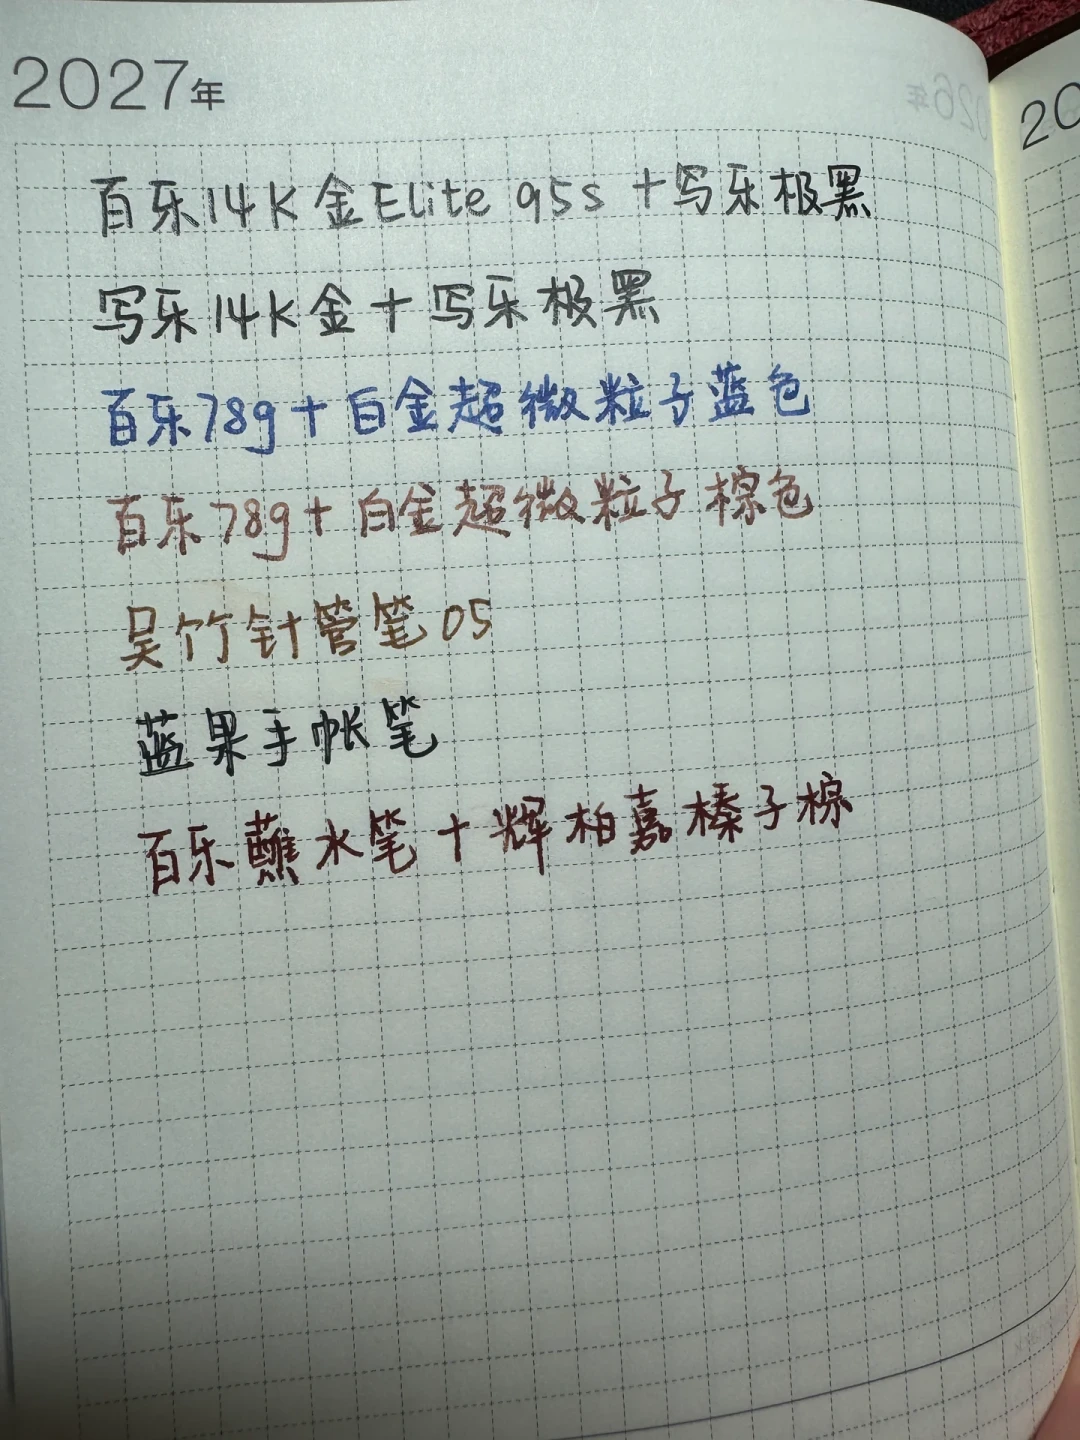 2027年
百乐14K金Elite 95s +写乐极黑
写乐14K金+写乐极黑
百乐78g+白金超微粒子蓝色
百乐78g+白金超微粒子棕色
吴竹针管笔05
蓝果手帐笔
百乐蘸水笔+辉柏嘉榛子棕
20